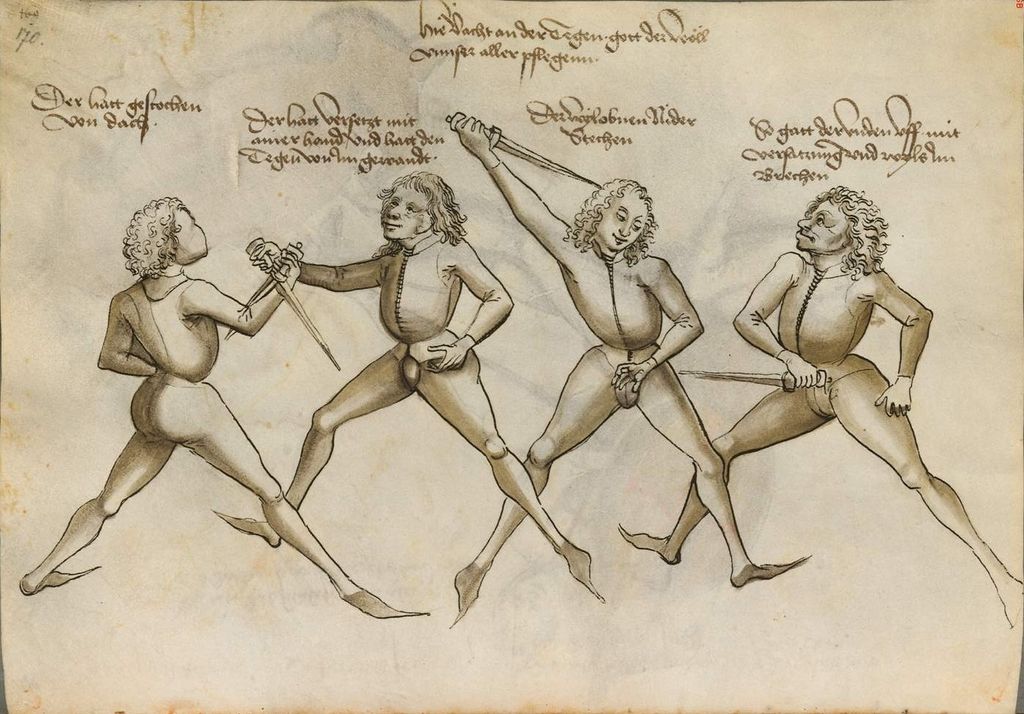 170.
Hie Vacht an der Tegen gott der Wöll
vnnser aller pflegenn.
Der hatt gestochen
von dach.
Der hatt versetzt mit
ainer hand vnd hatt den
Tegen von Im gewandt.
Der wyl obnen Nider
Stechen
So gatt der vnden vff mit
versatzung vnd wyls Im
Brechen